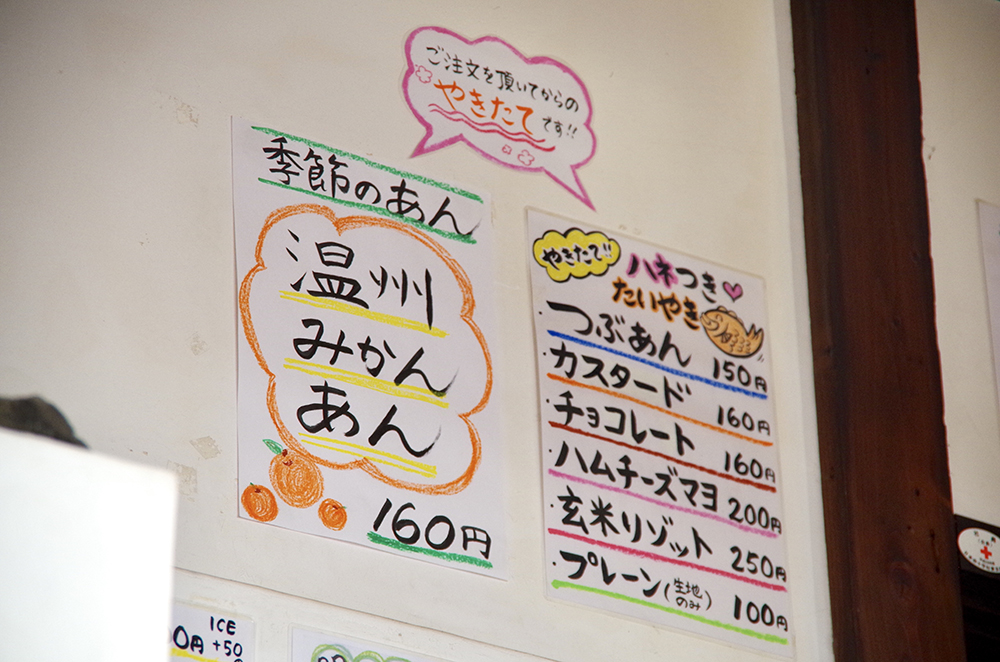 ご注文を頂いてからの
やきたてです!!
季節のあん
温州
みかん
あん
160円
やきたて!!
ハネつき
たいやき
・つぶあん 150円
・カスタード 160円
・チョコレート 160円
・ハムチーズマヨ 200円
・玄米リゾット 250円
・プレーン(生地のみ) 100円
ICE
0円 +50